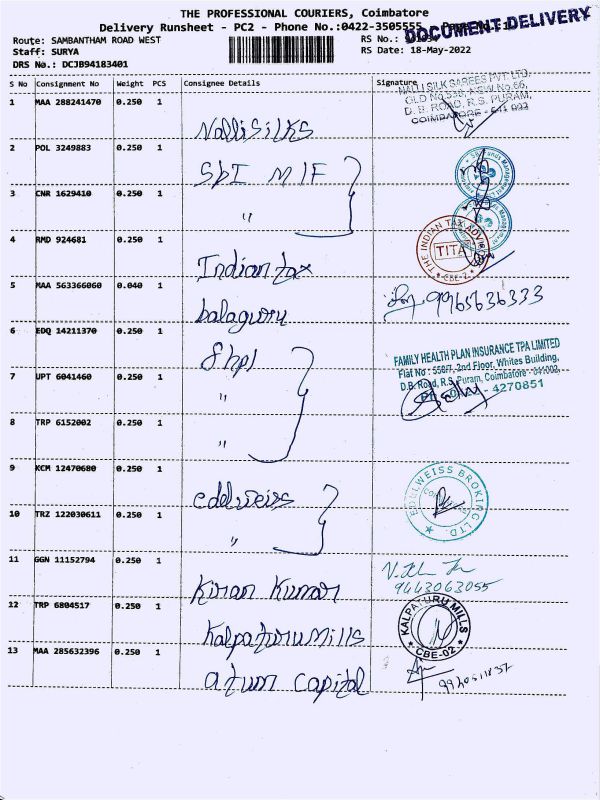 THE PROFESSIONAL COURIERS, Coimbatore
Delivery Runsheet - PC2 - Phone No.:0422-3505555
DOCUMENT DELIVERY
Route: SAMBANTHAM ROAD WEST
RS No.:
Staff: SURYA
RS Date: 18-May-2022
DRS No.: DCJB94183401
S No Consignment No Weight PCS Consignee Details Signature
NALLI SILK SAREES PVT. LTD.
D. B. ROAD, R.S. PURAM,
COIMBATORE - 641 002
1 MAA 288241470 0.250 1 Nalli Silks
2 POL 3249883 0.250 1 SbI MIF
3 CNR 1629410 0.250 1 "
4 RMD 924681 0.250 1 Indian tax
THE INDIAN TAX
TITA
CBE-2
5 MAA 563366060 0.040 1 balaguru
9965636333
6 EDQ 14211370 0.250 1 fhpl
FAMILY HEALTH PLAN INSURANCE TPA LIMITED
Flat No : 550/7, 2nd Floor, Whites Building,
D.B. Road, R.S. Puram, Coimbatore - 641002,
4270851
7 UPT 6041460 0.250 1 "
8 TRP 6152002 0.250 1 "
9 KCM 12470680 0.250 1 edelweiss
EDELWEISS BROKING LTD.
10 TRZ 122030611 0.250 1 "
11 GGN 11152794 0.250 1 Kiran Kumar
9443063055
12 TRP 6804517 0.250 1 Kalpaturu Mills
KALPATURU MILLS
CBE-02
13 MAA 285632396 0.250 1 atum capital